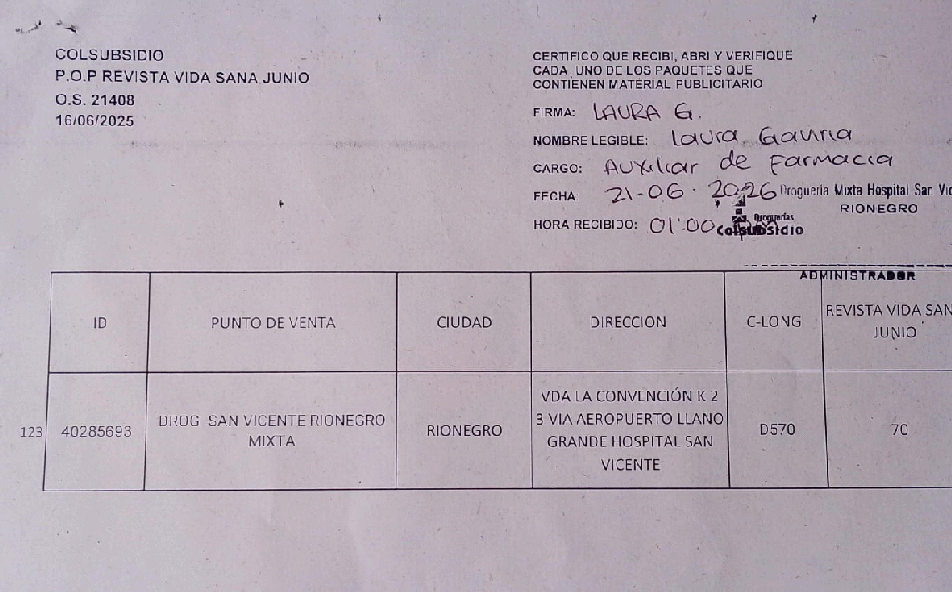 COLSUBSIDIO
P.O.P REVISTA VIDA SANA JUNIO
O.S. 21408
16/06/2025
CERTIFICO QUE RECIBI, ABRI Y VERIFIQUE
CADA UNO DE LOS PAQUETES QUE
CONTIENEN MATERIAL PUBLICITARIO
FIRMA: LAURA G.
NOMBRE LEGIBLE: Laura Gaviria
CARGO: Auxiliar de Farmacia
FECHA 21-06-2026
HORA RECIBIDO: 01:00
Drogueria Mixta Hospital San Vic
RIONEGRO
Droguerías
Colsubsidio
ADMINISTRADOR
ID PUNTO DE VENTA CIUDAD DIRECCION C-LONG REVISTA VIDA SAN
JUNIO
123 40285693 DROG SAN VICENTE RIONEGRO
MIXTA
RIONEGRO
VDA LA CONVENCIÓN K 2
3 VIA AEROPUERTO LLANO
GRANDE HOSPITAL SAN
VICENTE
D570
70